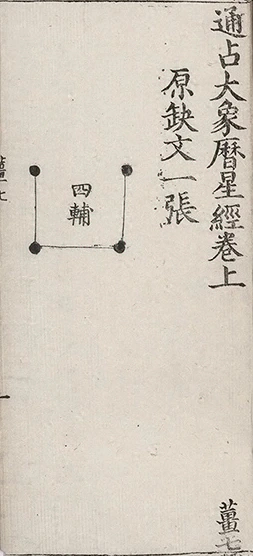 通占大象曆星經卷上
薑七
原缺文一張
四輔